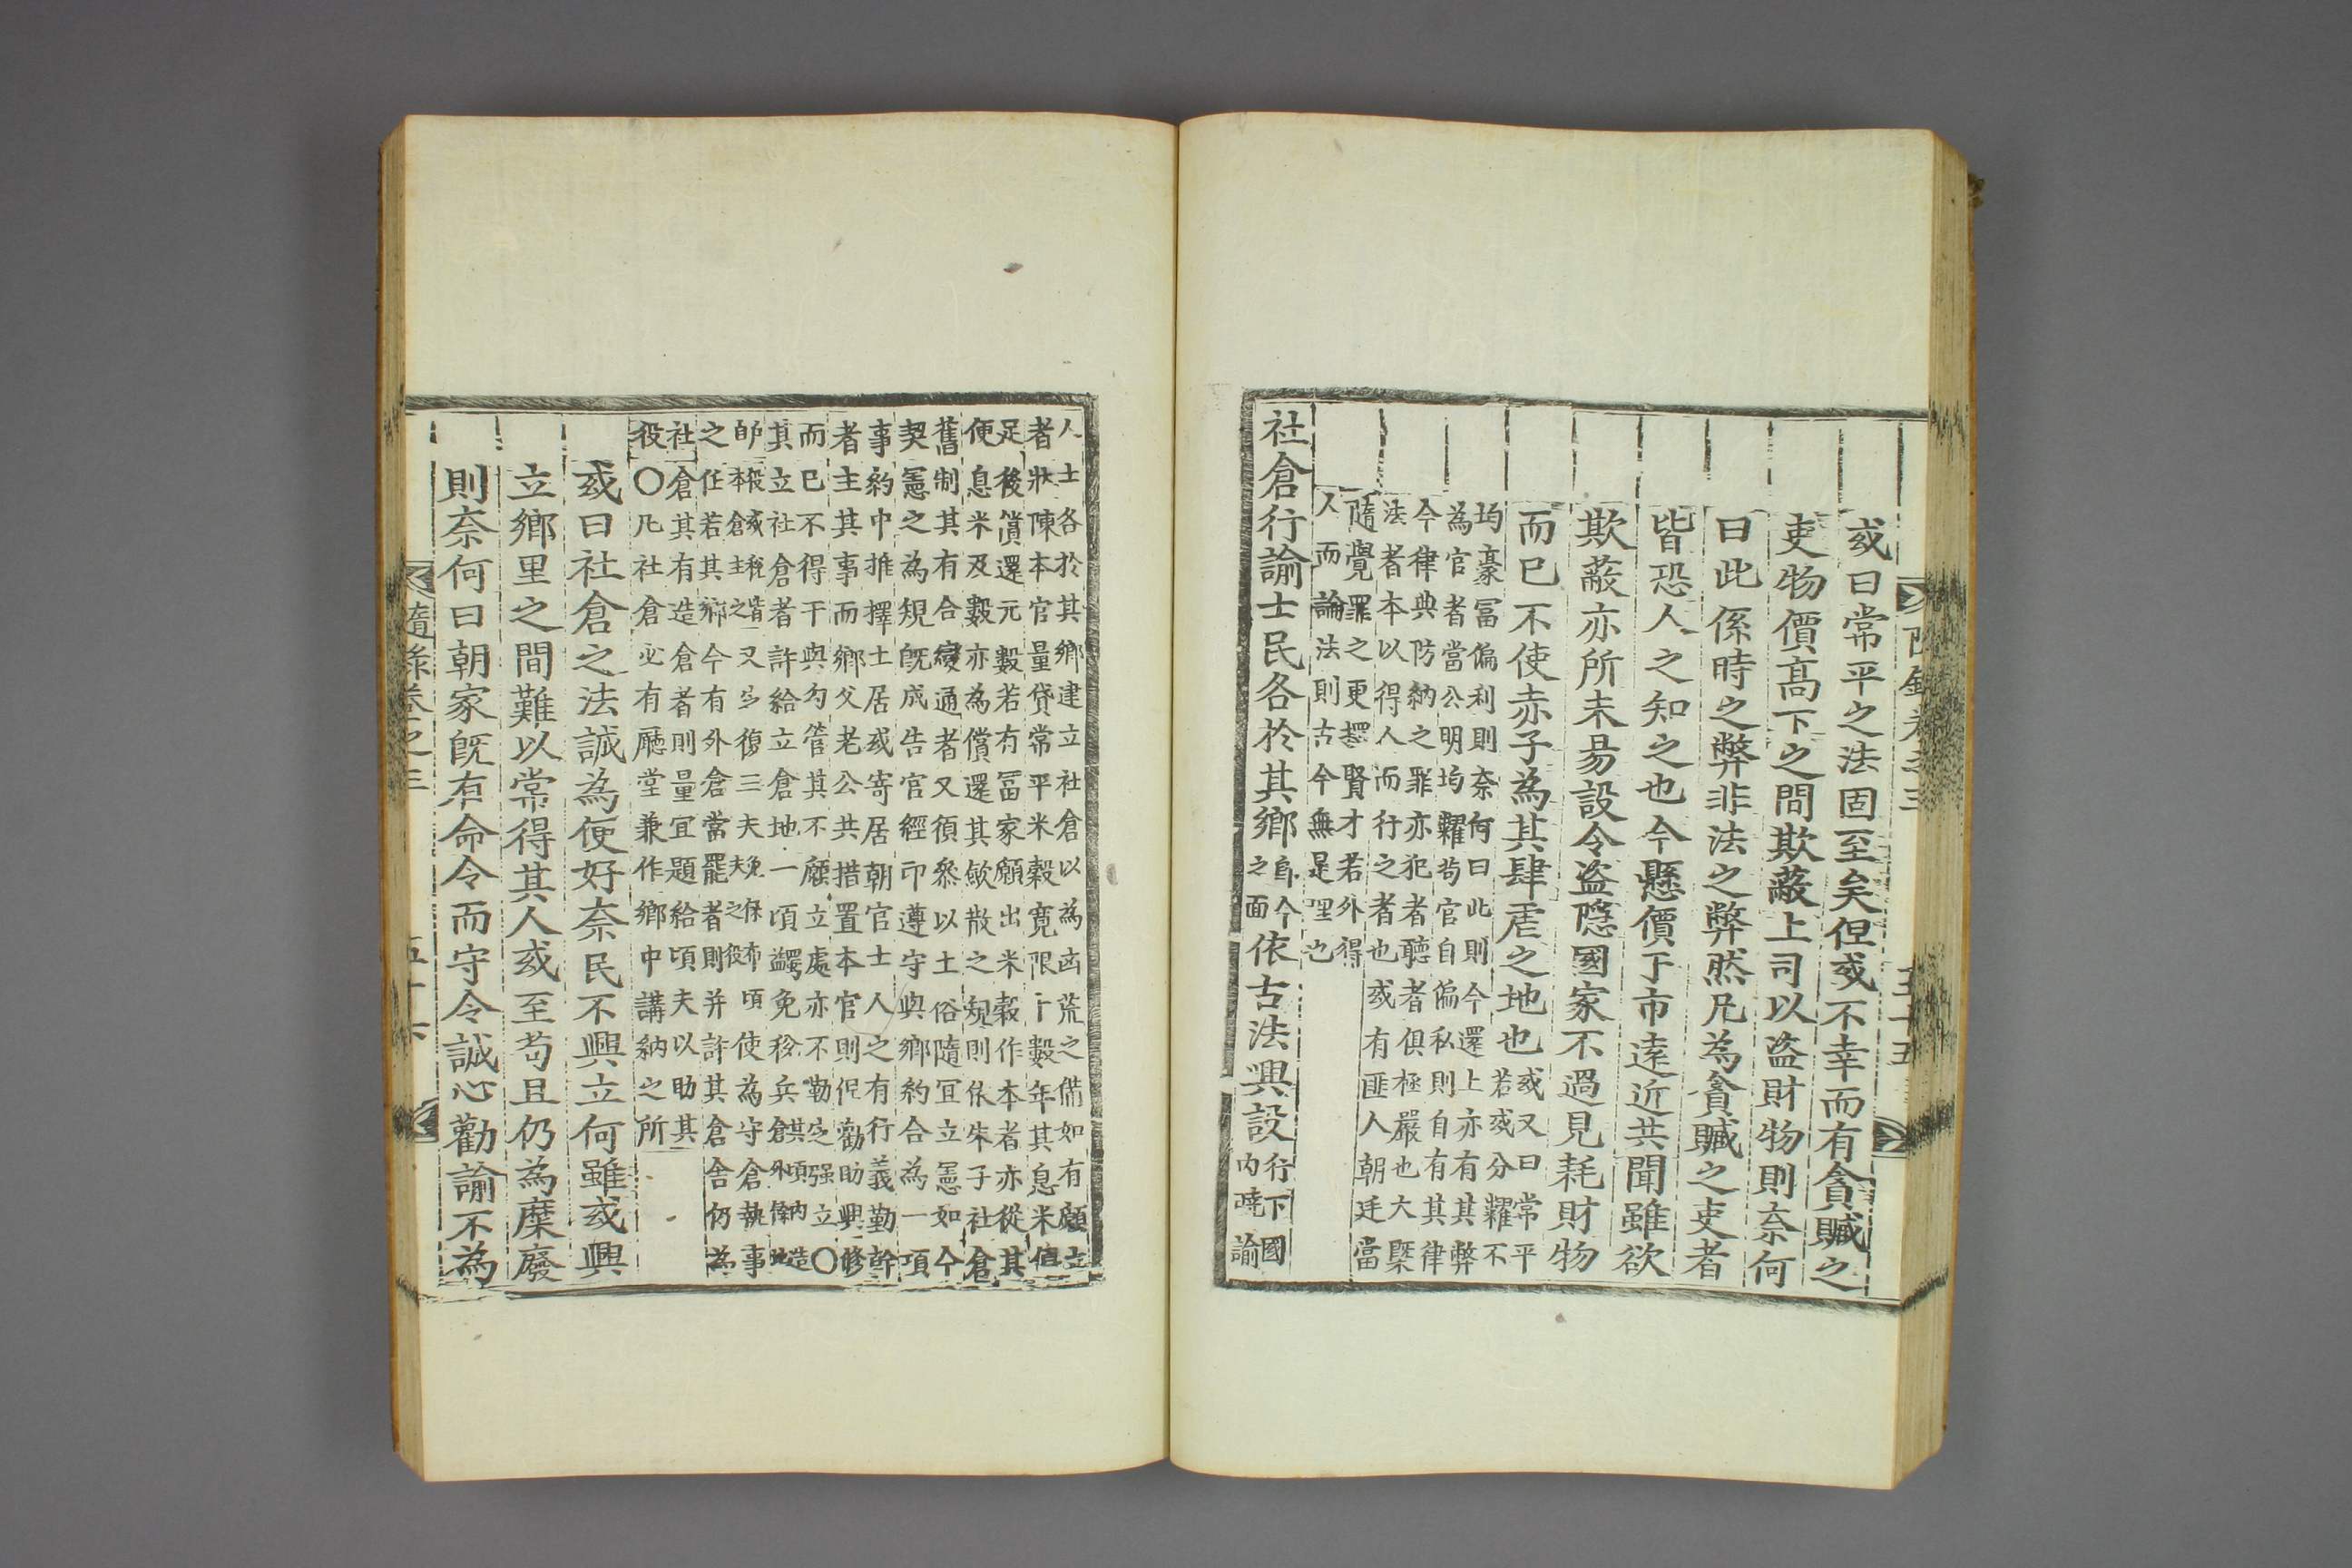 隨錄卷之三 五十五
或曰常平之法固至矣但或不幸而有貪贓之
吏物價高下之間欺蔽上司以盜財物則奈何
曰此係時之弊非法之弊然凡為貪贓之吏者
皆恐人之知之也今懸價于市遠近共聞雖欲
欺蔽亦所未易設令盜隱國家不過見耗財物
而已不使赤子為其肆虐之地也或又曰常平
若或分糶不
均豪富偏利則奈何曰此則今還上亦有其弊
為官者當公明均糶苟官自偏私則自有其律
今律典防納之罪亦犯者聽者俱極嚴也大槩
法者本以得人而行之者也或有匪人朝廷當
隨覺罪之更擇賢才若外得
人而論法則古今無是理也
社倉行諭士民各於其鄉卽今之面依古法興設行下國內曉諭
人士各於其鄉建立社倉以為凶荒之備如有願立
者狀陳本官量貸常平米穀寬限十數年其息米值
足後償還元數若有富家願出米穀作本者亦從其
便息米及數亦為償還其歛散之規則依朱子社倉
舊制其有合變通者又須叅以土俗隨宜立憲如今
契憲之為規旣成告官經印遵守與鄉約合為一項
事約中推擇士居或寄居朝官士人之有行義勤幹
者主其事而鄉父老公共措置本官則但勸助興修
而已不得干與勾管其不願立處亦不勒定强立〇
其立社倉者許給立倉地一頃蠲免稅兵其頃內造倉外餘地
師穀或稅皆本倉主之又定復三夫免保布夫之役頃使為守倉執事
之任若其鄉今有外倉當罷者則并許其倉舍仍為
社倉其有造倉者則量宜題給頃夫以助其
役〇凡社倉必有廳堂兼作鄉中講納之所
或曰社倉之法誠為便好奈民不興立何雖或興
立鄉里之間難以常得其人或至苟且仍為糜廢
則奈何曰朝家旣有命令而守令誠心勸諭不為
隨錄卷之三 五十六